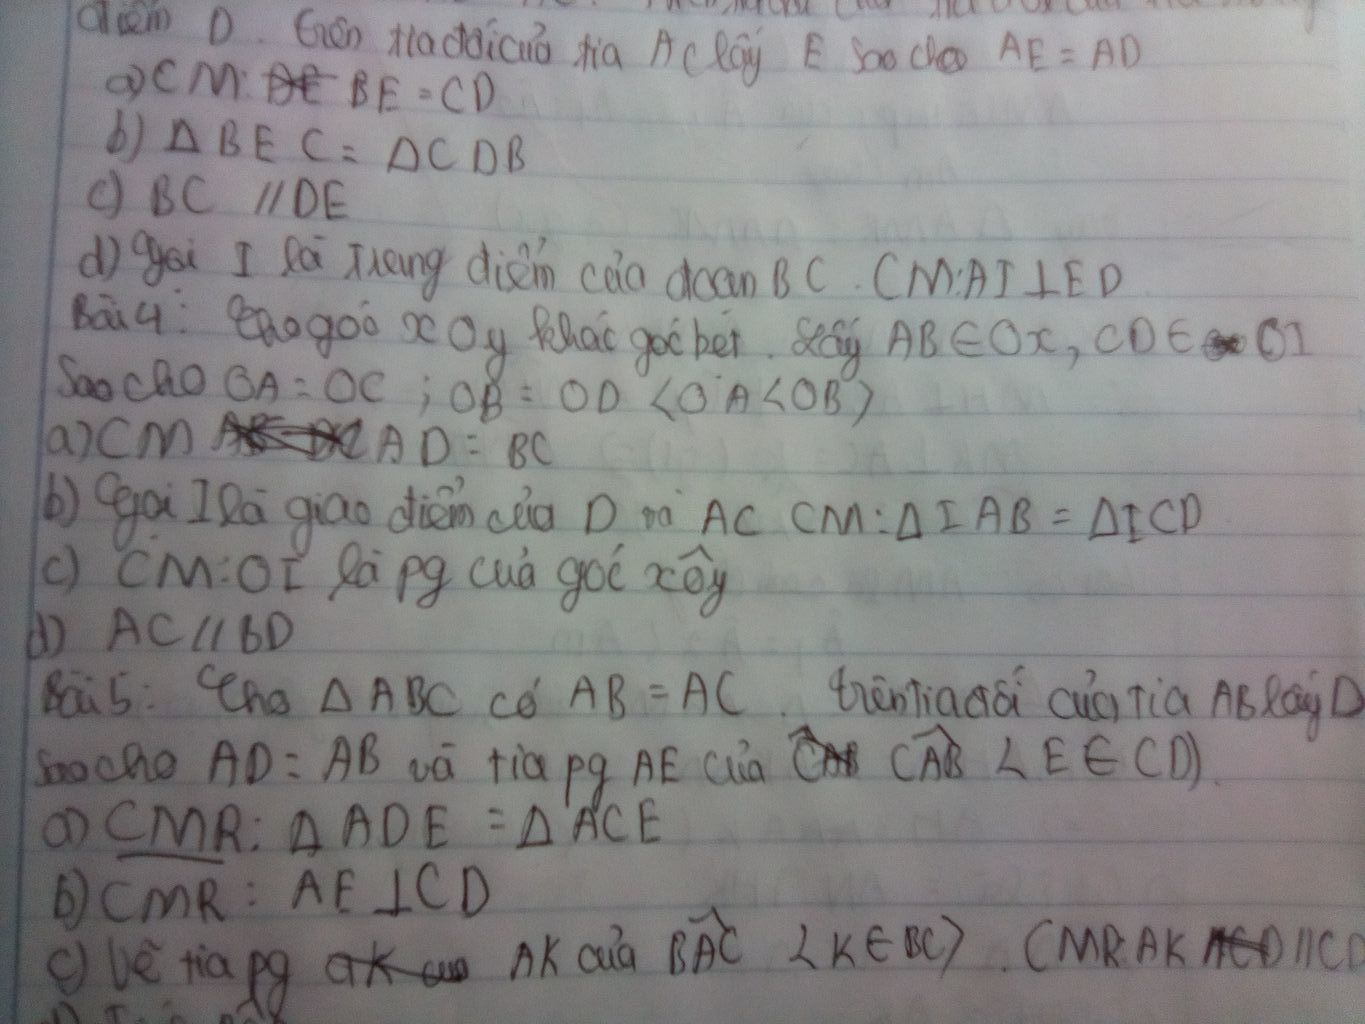 điểm D. trên tia đối của tia AC lấy E sao cho AE = AD
a) CM: BE = CD
b) Δ BEC = ΔCDB
c) BC // DE
d) gọi I là trung điểm của đoan BC. CM: AI ⊥ ED
Bài 4: Cho góc xOy khác góc bẹt. Lấy AB ∈ Ox, CD ∈ OI
Sao cho OA = OC ; OB = OD <OA < OB>
a) CM AD = BC
b) Gọi I là giao điểm của D và AC CM: Δ IAB = ΔICD
c) CM: OI là pg của góc xÔy
d) AC // BD
Bài 5: Cho Δ ABC có AB = AC. trên tia đối của tia AB lấy D
sao cho AD = AB và tia pg AE của CAB < E ∈ CD)
a) CMR: Δ ADE = Δ ACE
b) CMR: AE ⊥ CD
c) Vẽ tia pg AK của BAC <K ∈ BC>. CMR AK // CD